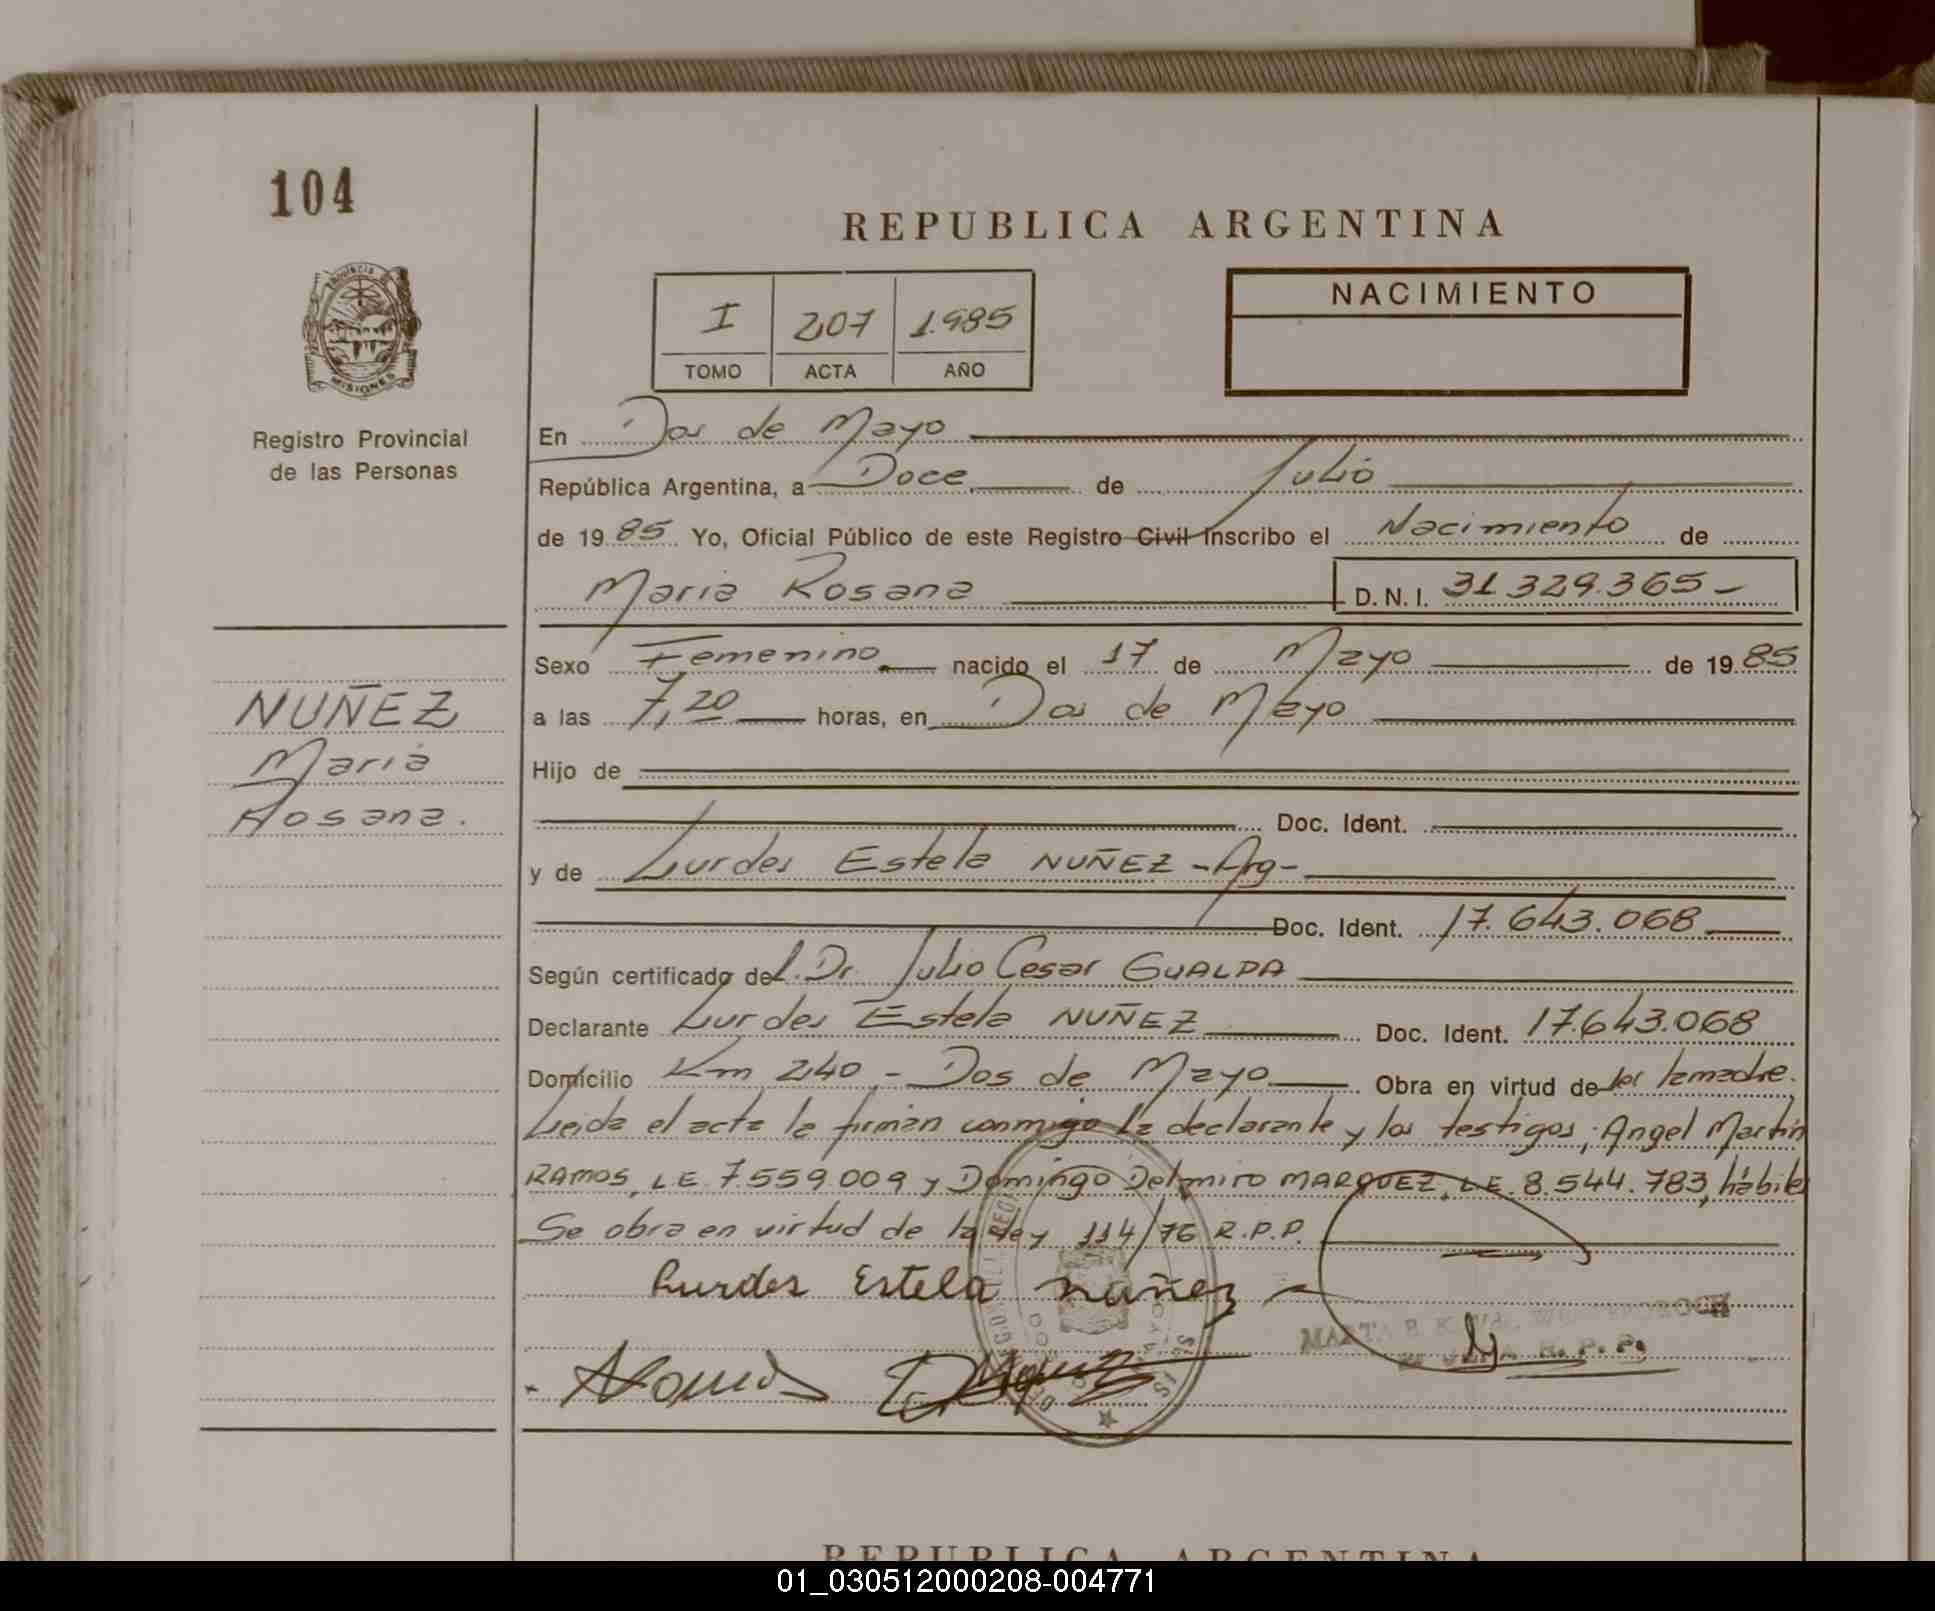 104
REPUBLICA ARGENTINA
PROVINCIA
MISIONES
Registro Provincial
de las Personas
I 207 1.985
TOMO ACTA AÑO
NACIMIENTO
En Dos de Mayo
República Argentina, a Doce de Julio
de 1985 Yo, Oficial Público de este Registro Civil Inscribo el Nacimiento de
Maria Rosana D.N.I. 31.329.365-
Sexo Femenino nacido el 17 de Mayo de 1985
a las 7,20 horas, en Dos de Mayo
NUÑEZ
Maria
Rosana.
Hijo de
Doc. Ident.
y de Lurdes Estela NUÑEZ -Arg-
Doc. Ident. 17.643.068
Según certificado del. Dr. Julio Cesar GUALDA
Declarante Lurdes Estela NUÑEZ Doc. Ident. 17.643.068
Domicilio Km 240 - Dos de Mayo Obra en virtud de ser la madre.
Leida el acta la firman conmigo la declarante y los testigos; Angel Martin
RAMOS, L.E. 7.559.009 y Domingo Delmiro MARQUEZ, L.E. 8.544.783, hábiles
Se obra en virtud de la ley 114/76 R.P.P.
Lurdes Estela nuñez
MARTA
R. P. P.
REPUBLICA ARGENTINA
01_030512000208-004771